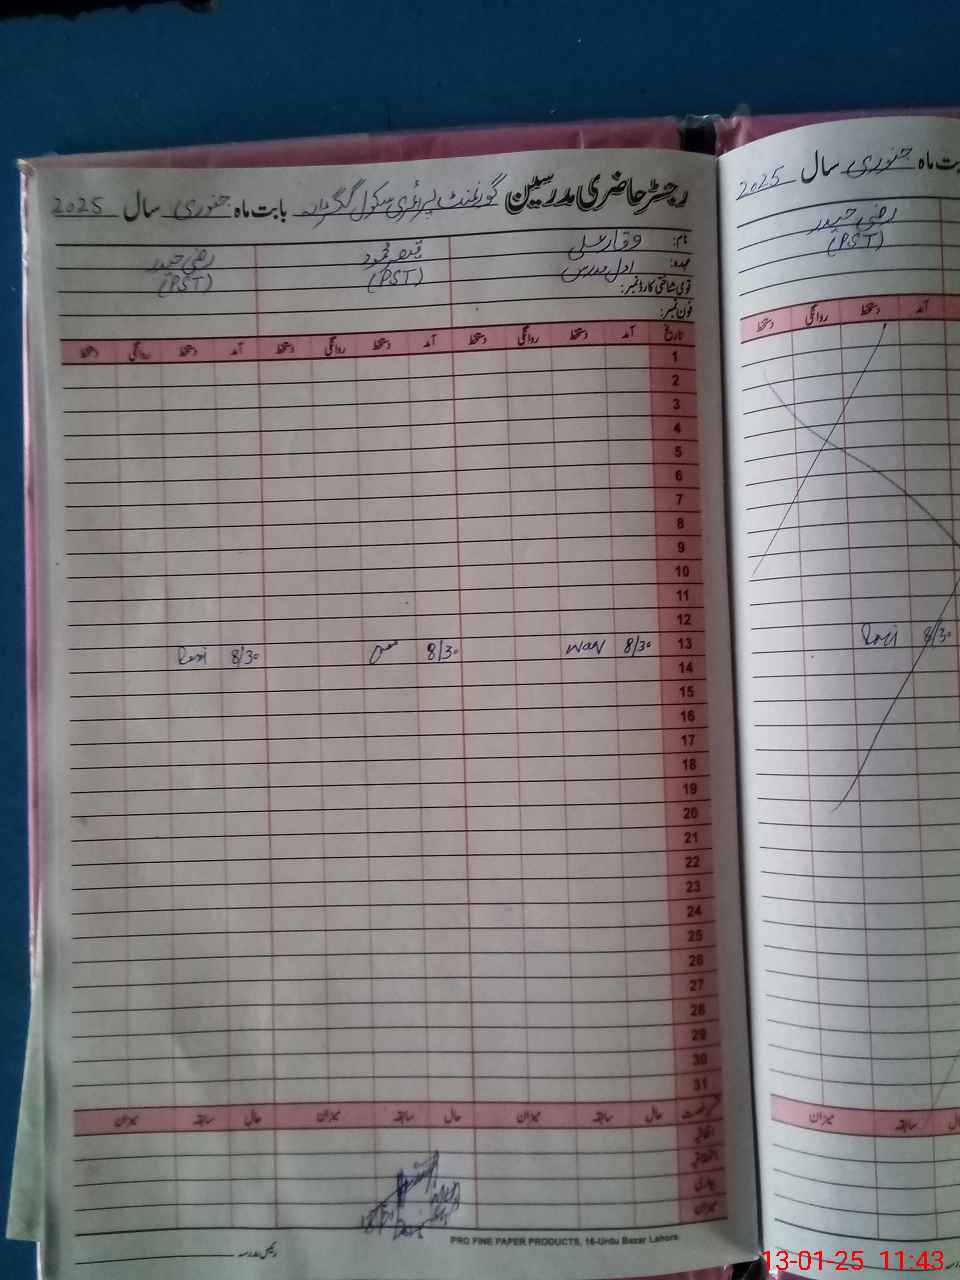 رجسٹر حاضری مدرسین گورنمنٹ پرائمری سکول بابت ماہ جنوری سال 2025
نام: وقار علی قیصر محمود رضی حیدر
عہدہ: اول مدرس (PST) (PST)
قومی شناختی کارڈ نمبر:
فون نمبر:
تاریخ آمد دستخط روانگی دستخط آمد دستخط روانگی دستخط آمد دستخط روانگی دستخط
1
2
3
4
5
6
7
8
9
10
11
12
13 8/30 WAN 8/30 8/30 Razi
14
15
16
17
18
19
20
21
22
23
24
25
26
27
28
29
30
31
رخصت حال سابقہ میزان حال سابقہ میزان حال سابقہ میزان
اتفاقیہ
بیماری
میزان
PRO FINE PAPER PRODUCTS, 16-Urdu Bazar Lahore.
رئیس مدرسہ
بت ماہ جنوری سال 2025
رضی حیدر
(PST)
آمد دستخط روانگی دستخط
8/30 Razi
حال سابقہ میزان
13-01-25 11:43